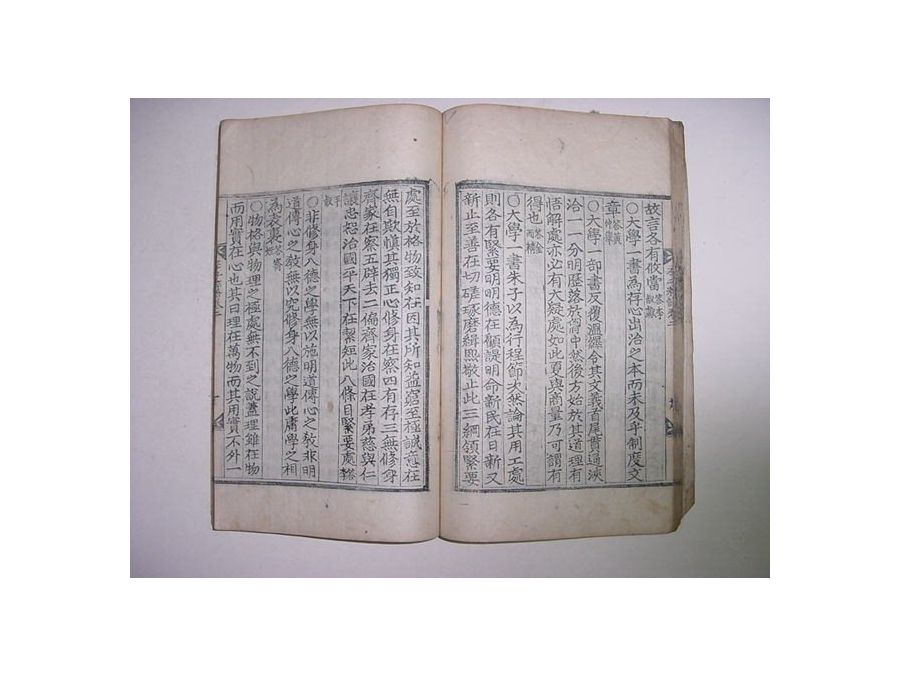 故言各有攸當
○大學一書為存心出治之本而未及乎制度文
章
○大學一部書反覆溫繹令其文義首尾貫通浹
洽一一分明歷落放胷中然後方始放其道理有
悟解處亦必有大疑處如此更與商量乃可謂有
得也
○大學一書朱子以為行程節次然論其用工處
則各有緊要明明德在顧諟明命新民在日新又
新止至善在切磋琢磨緝熙敬止此三綱領緊要
處至放格物致知在因其所知益窮至極誠意在
無自欺慎其獨正心修身在察四有存三無修身
齊家在察五辟去二偏齊家治國在孝弟慈與仁
讓忠恕治國平天下在絜矩此八條目緊要處
○非修身入德之學無以施明道傳心之教非明
道傳心之教無以究修身入德之學此庸學之相
為表裏
○物格與物理之極處無不到之說蓋理雖在物
而用實在心也其曰理在萬物而其用實不外一